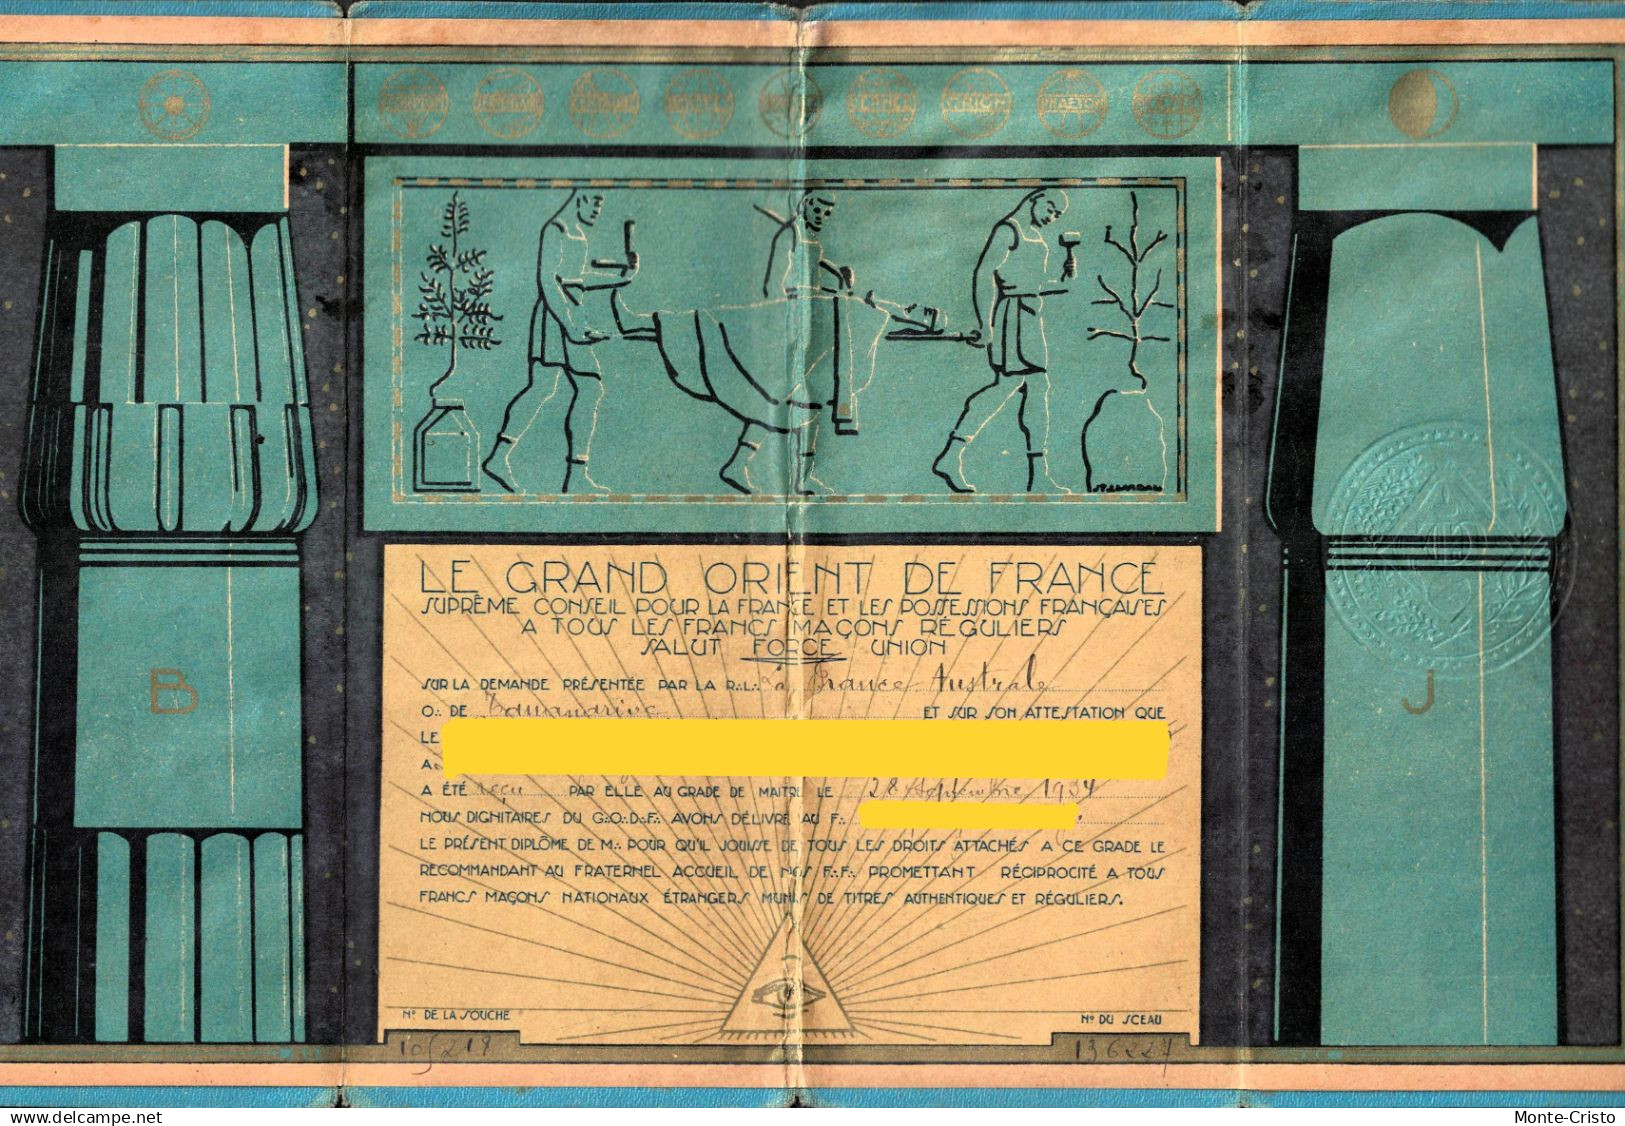 SCIENCE
UNION
LE GRAND ORIENT DE FRANCE
SUPRÊME CONSEIL POUR LA FRANCE ET LES POSSESSIONS FRANÇAISES
A TOUS LES FRANCS MAÇONS RÉGULIERS
SALUT FORCE UNION
SUR LA DEMANDE PRÉSENTÉE PAR LA R∴L∴ La France Australe
O∴ DE Tananarive ET SUR SON ATTESTATION QUE
LE
A ÉTÉ reçu PAR ELLE AU GRADE DE MAITRE LE 28 Septembre 1934
NOUS DIGNITAIRES DU G∴O∴D∴F∴ AVONS DÉLIVRÉ AU F∴
LE PRÉSENT DIPLÔME DE M∴ POUR QU'IL JOUISSE DE TOUS LES DROITS ATTACHÉS A CE GRADE LE
RECOMMANDANT AU FRATERNEL ACCUEIL DE NOS F∴F∴ PROMETTANT RÉCIPROCITÉ A TOUS
FRANCS MAÇONS NATIONAUX ÉTRANGERS MUNIS DE TITRES AUTHENTIQUES ET RÉGULIERS.
B
J
Nº DE LA SOUCHE
Nº DU SCEAU
105218
136227
delcampe.net
Monte-Cristo